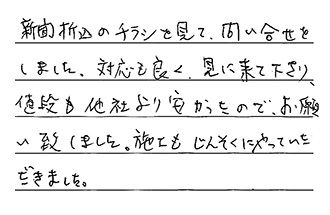 新聞折込のチラシを見て、問い合せを
しました。対応も良く、見に来て下さり、
値段も他社より安かったので、お願
い致しました。施工もじんそくにやっていた
だきました。